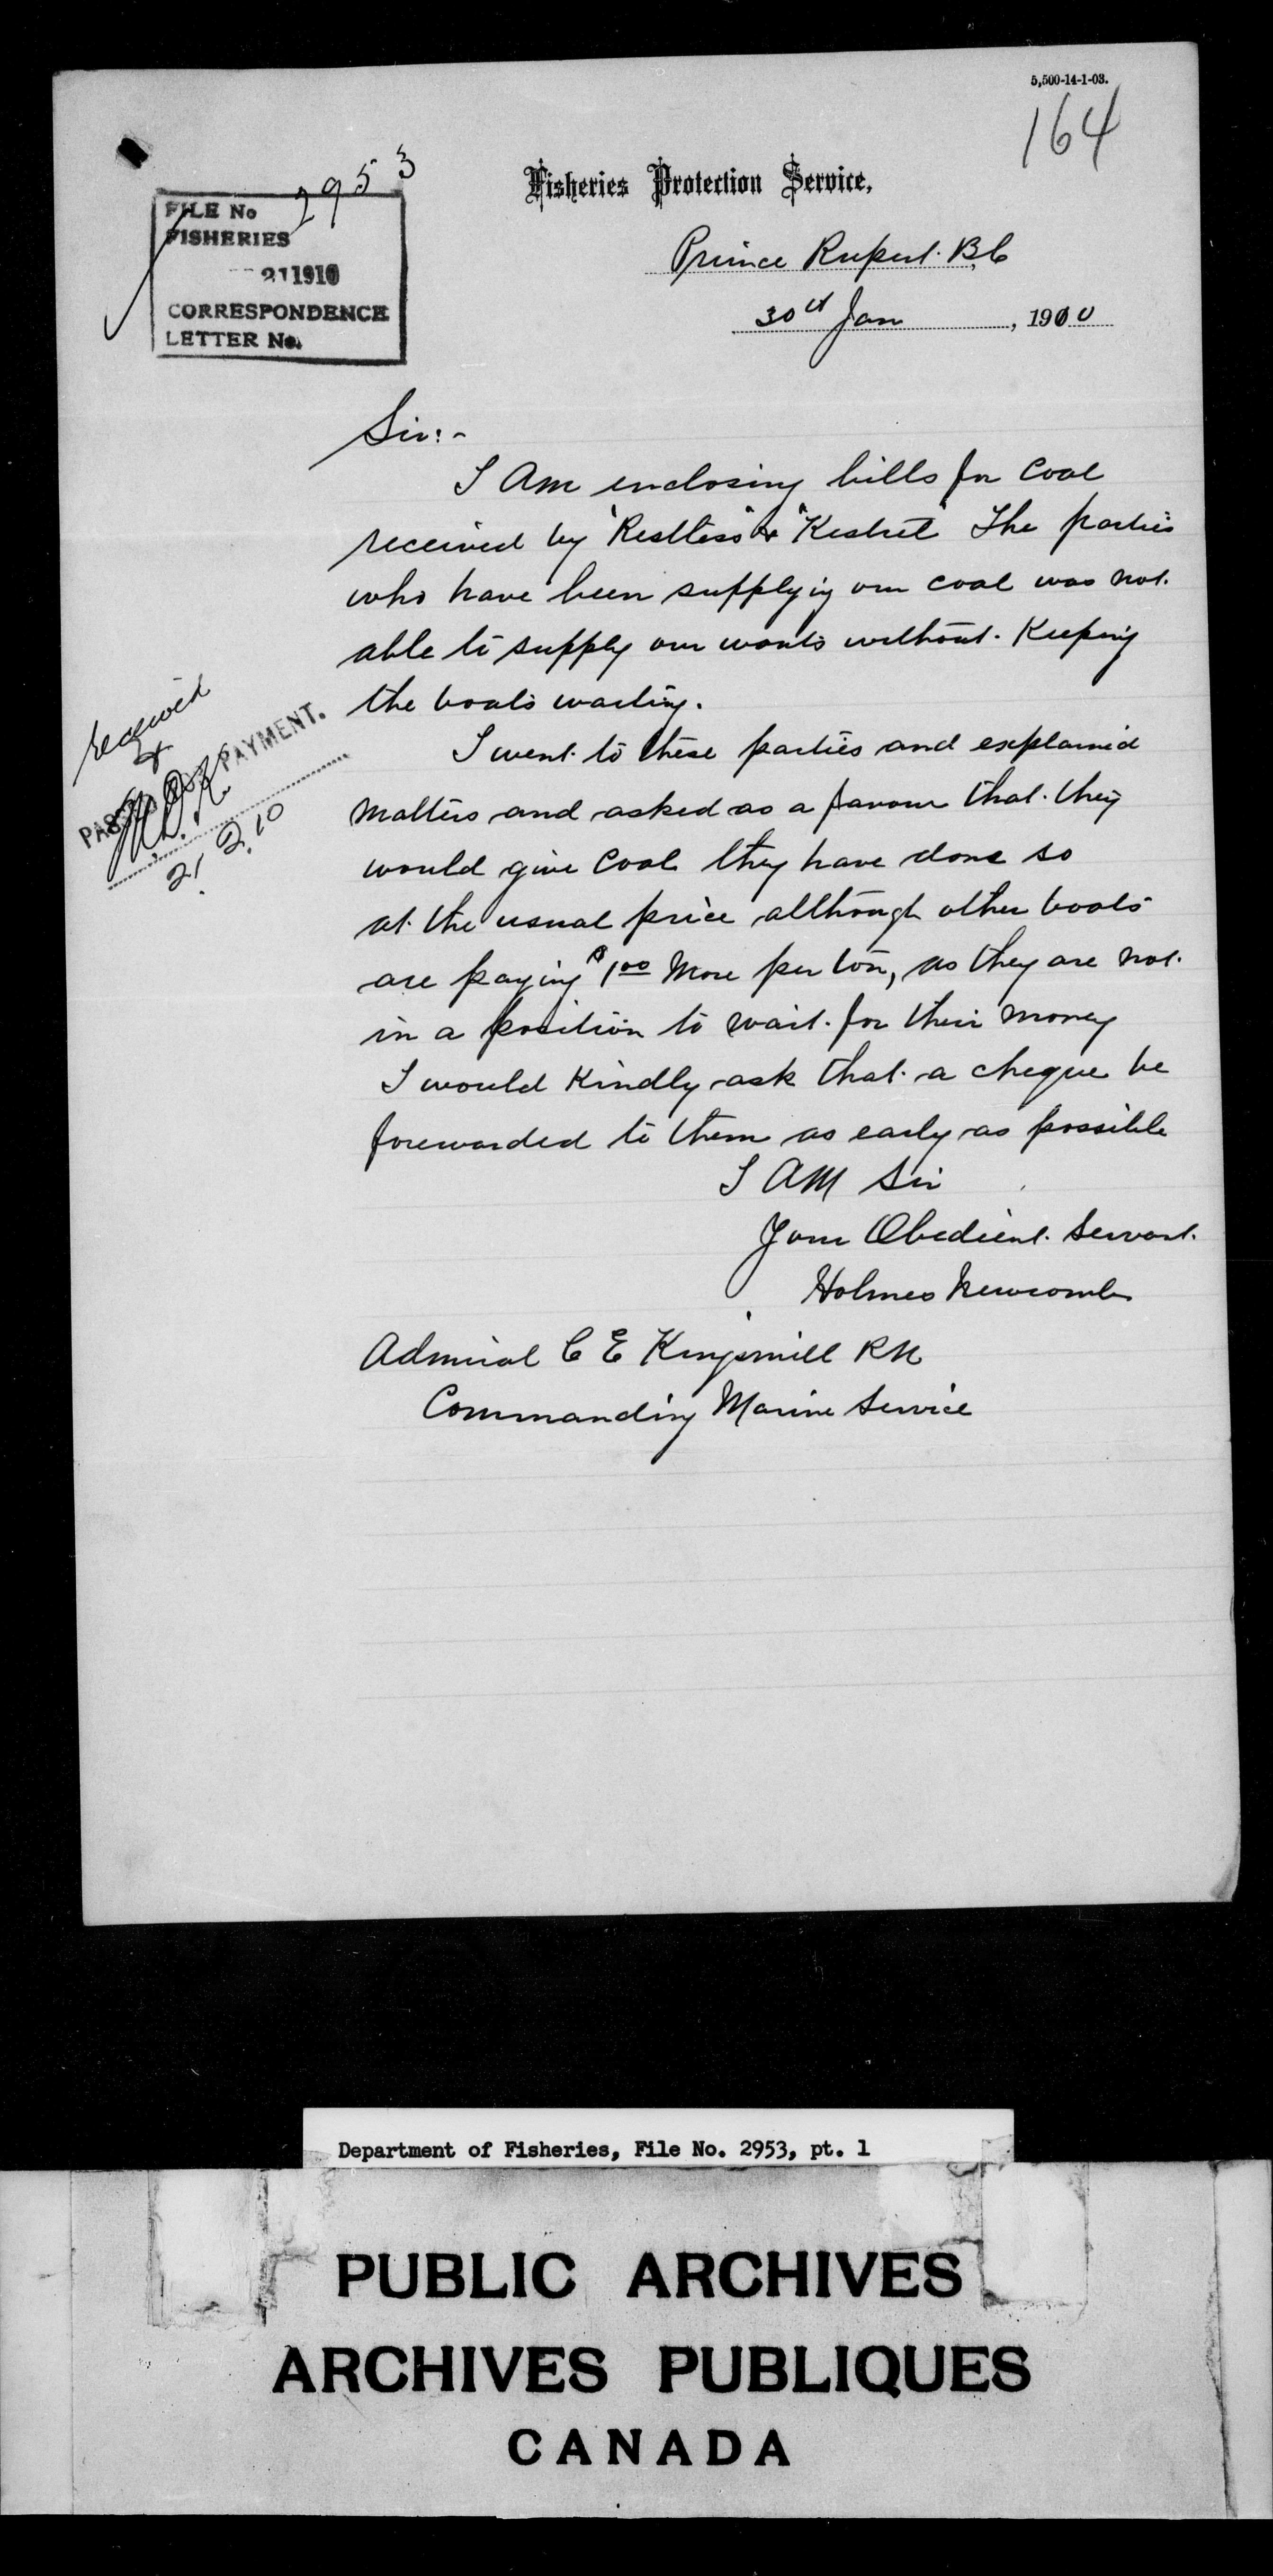 5,500-14-1-03.
164
Fisheries Protection Service,
2953
FILE No
FISHERIES
21 1910
CORRESPONDENCE
LETTER No.
Prince Rupert. B.C
30th Jan, 1910
Sir:-
I Am enclosing bills for Coal
received by "Restless" & "Kestrel" The parties
who have been supplying our coal was not.
able to supply our wants without. Keeping
the boats waiting.
I went. to these parties and explained
Matters and asked as a favour that. they
would give Coal they have done so
at. the usual price allthough other boats
are paying $1.00 More per ton, as they are not.
in a position to wait. for their money
I would Kindly ask that. a cheque be
forewarded to them as early as possible
I AM Sir
Your Obedient. Servant.
Holmes Newcomb
Admiral C E Kingsmill RN
Commanding Marine Service
received
&
PASSED FOR PAYMENT.
21.2.10
Department of Fisheries, File No. 2953, pt. 1
PUBLIC ARCHIVES
ARCHIVES PUBLIQUES
CANADA